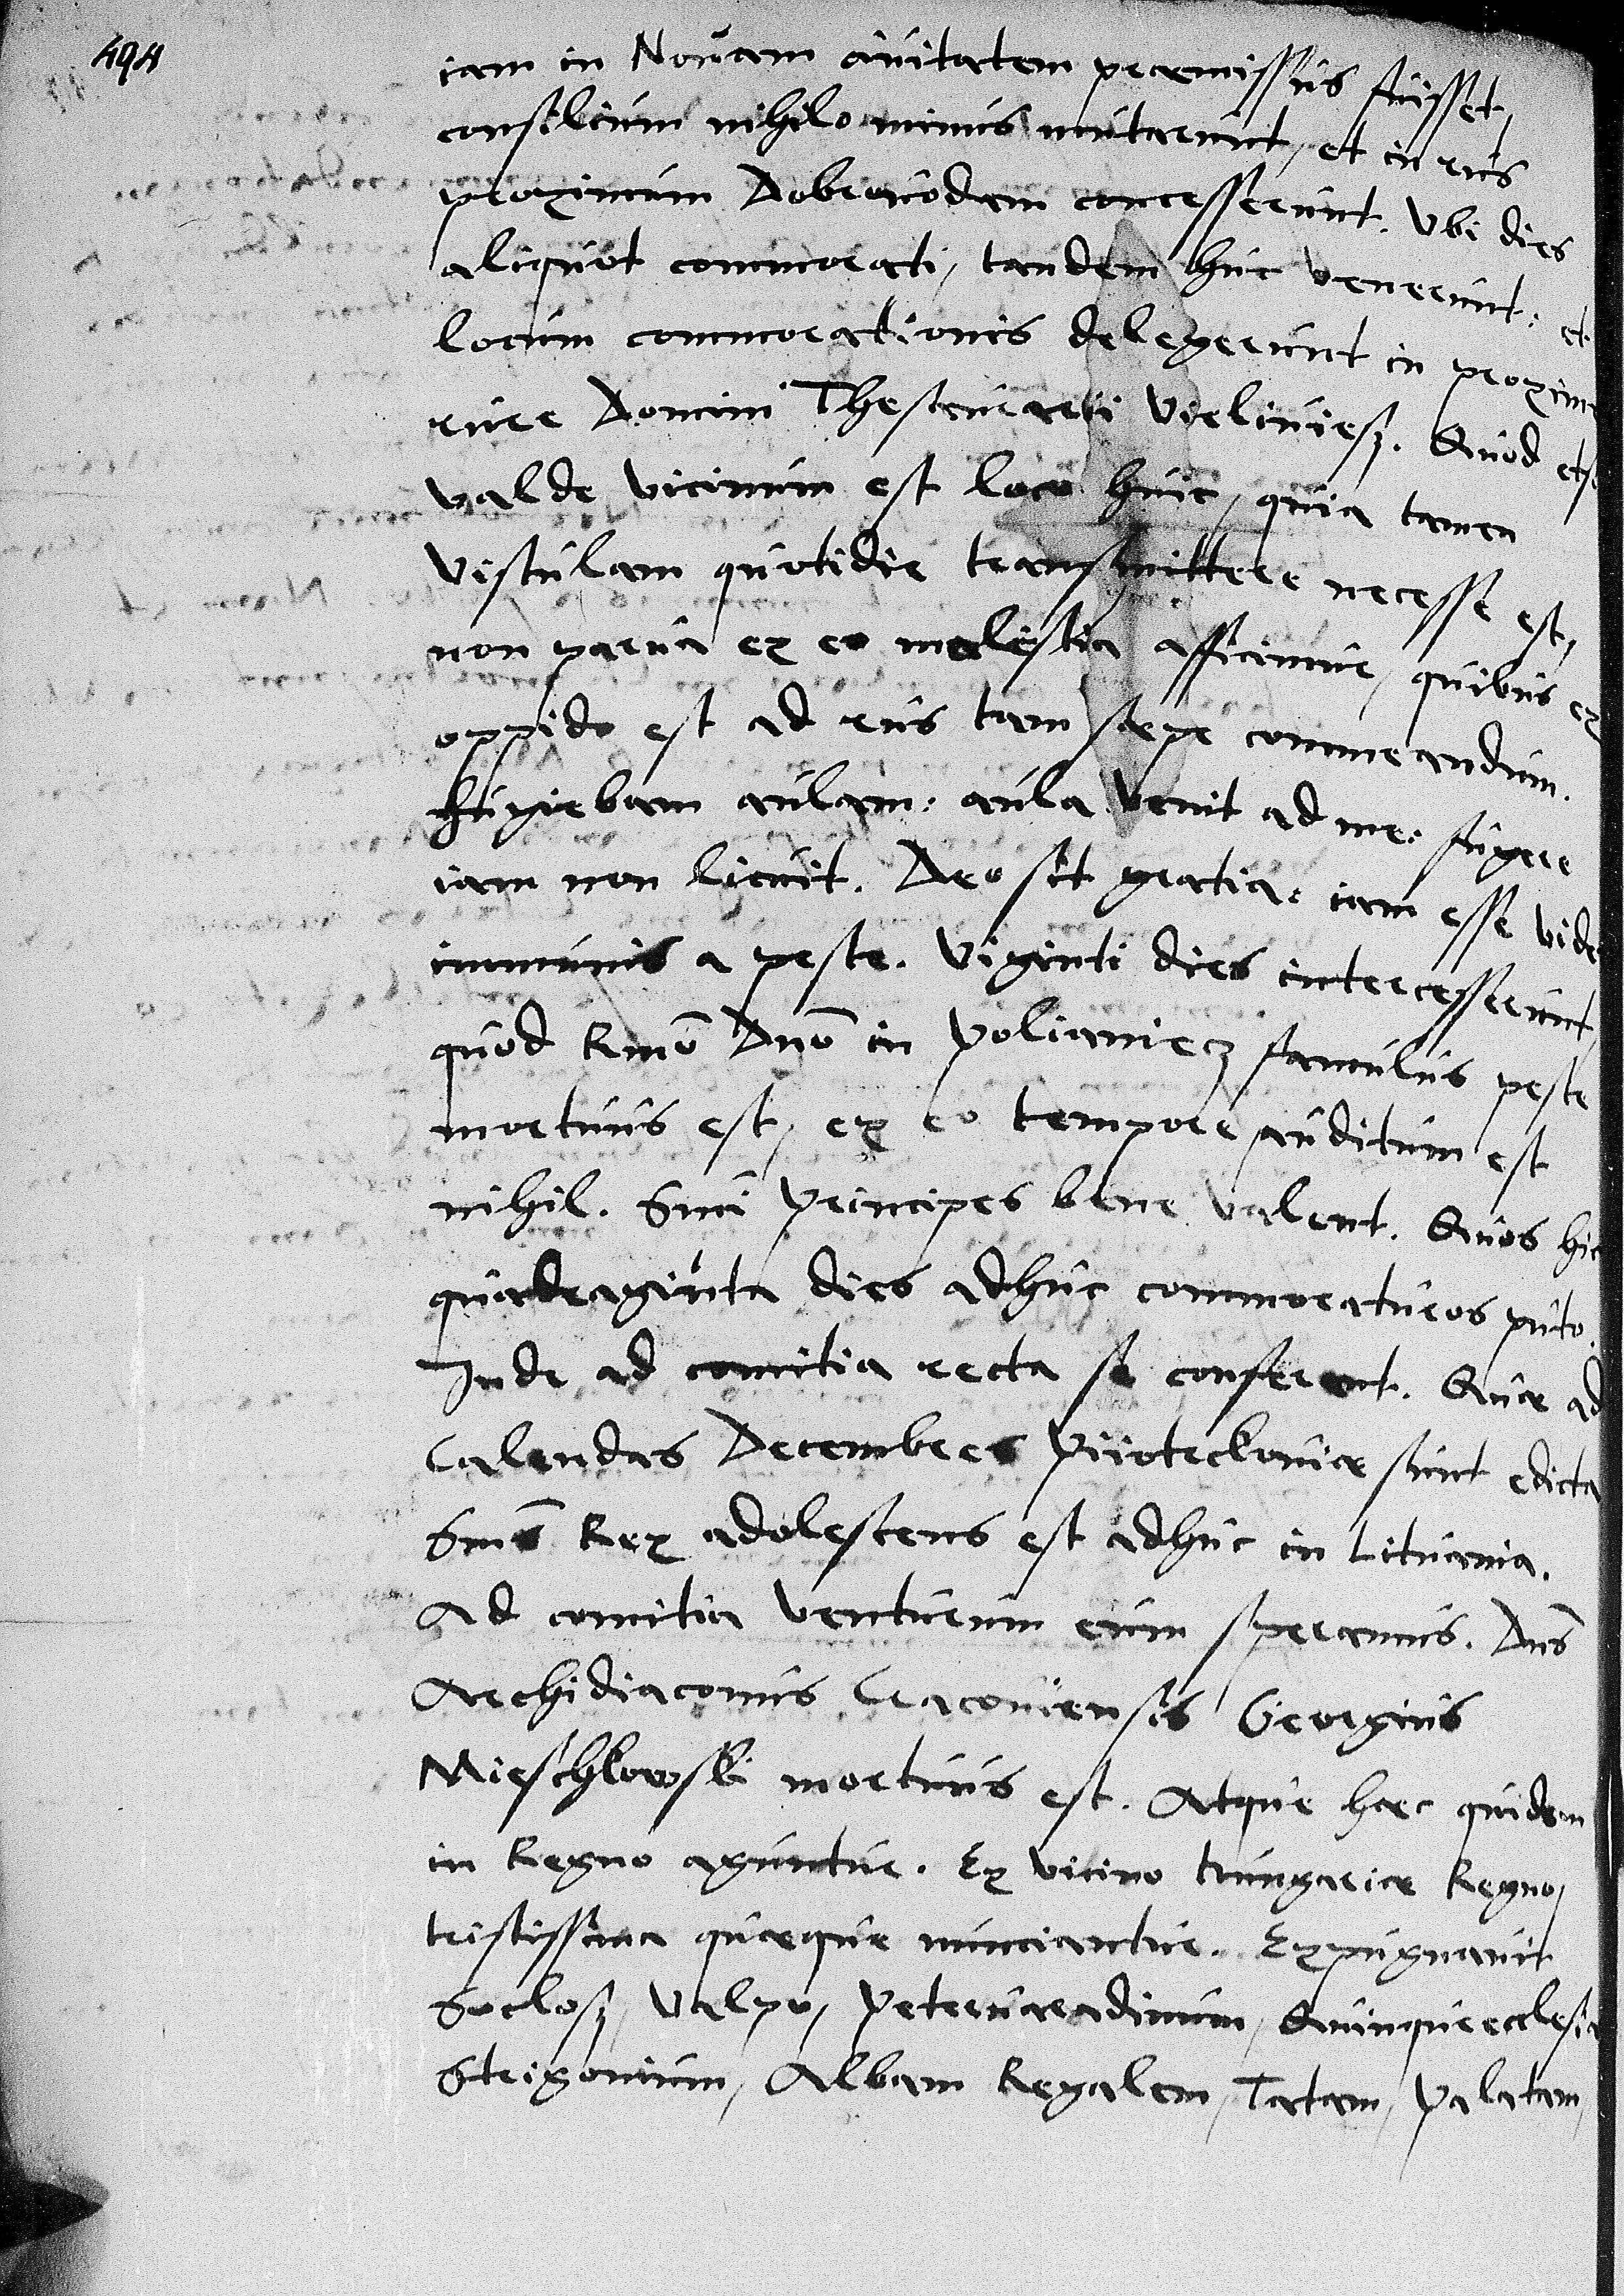 494
iam in Novam civitatem praemissus fuisset,
consilium nihilo minus mutarunt, et in rus
proximum Dobrovodam concesserunt. Vbi dies
aliquot commorati, tandem huc venerunt: et
locum commorationis delegerunt in proximo
rure Domini Thesaurarii Vieliviesz. Quod etsi
valde vicinum est loco huic, quia tamen
Vistulam quotidie transmittere necesse est,
non parva ex eo molestia afficimur, quibus ex
oppido est ad rus tam saepe commeandum.
Fugiebam aulam: aula venit ad me: fugere
iam non licuit. Deo sit gratia: iam esse vide
immunis a peste. Viginti dies intercesserunt,
quod Rmo Dno in Polianiecz famulus peste
mortuus est, ex eo tempore auditum est
nihil. Smi Principes bene valent. Quos hic
quadraginta dies adhuc commoraturos puto.
Inde ad comitia recta se conferent. Quae ad
Calendas Decembres Piiotrckoviae sunt edicta
Sms Rex adolescens est adhuc in Lituania.
Ad comitia venturum eum speramus. Dns
Archidiaconus Cracoviensis Georgius
Mieschkowski mortuus est. Atque haec quidem
in Regno aguntur. Ex vicino Hungariae Regno,
tristissima quaeque nunciantur. Expugnavit
Soclosz, Valpo, Petervaradinum, Quinqueecclesia
Strigonium, Albam Regalem, Tatam, Palatam,